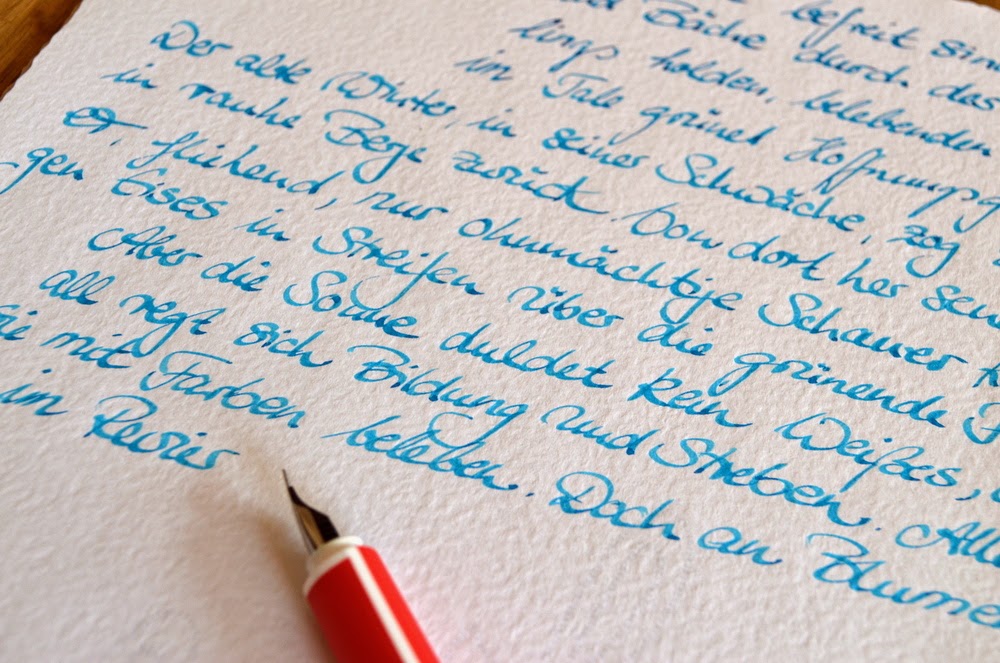 befreit sin
Bäche durch das
lings holden, belebenden
im Tale grünet Hoffnungsg
Der alte Winter, in seiner Schwäche, zog
in rauhe Berge zurück. Von dort her sen
er, fliehend, nur ohnmächtige Schauer k
gen Eises in Streifen über die grünende F
Aber die Sonne duldet kein Weißes,
all regt sich Bildung und Streben. All
sie mit Farben beleben. Doch an Blume
im Revier